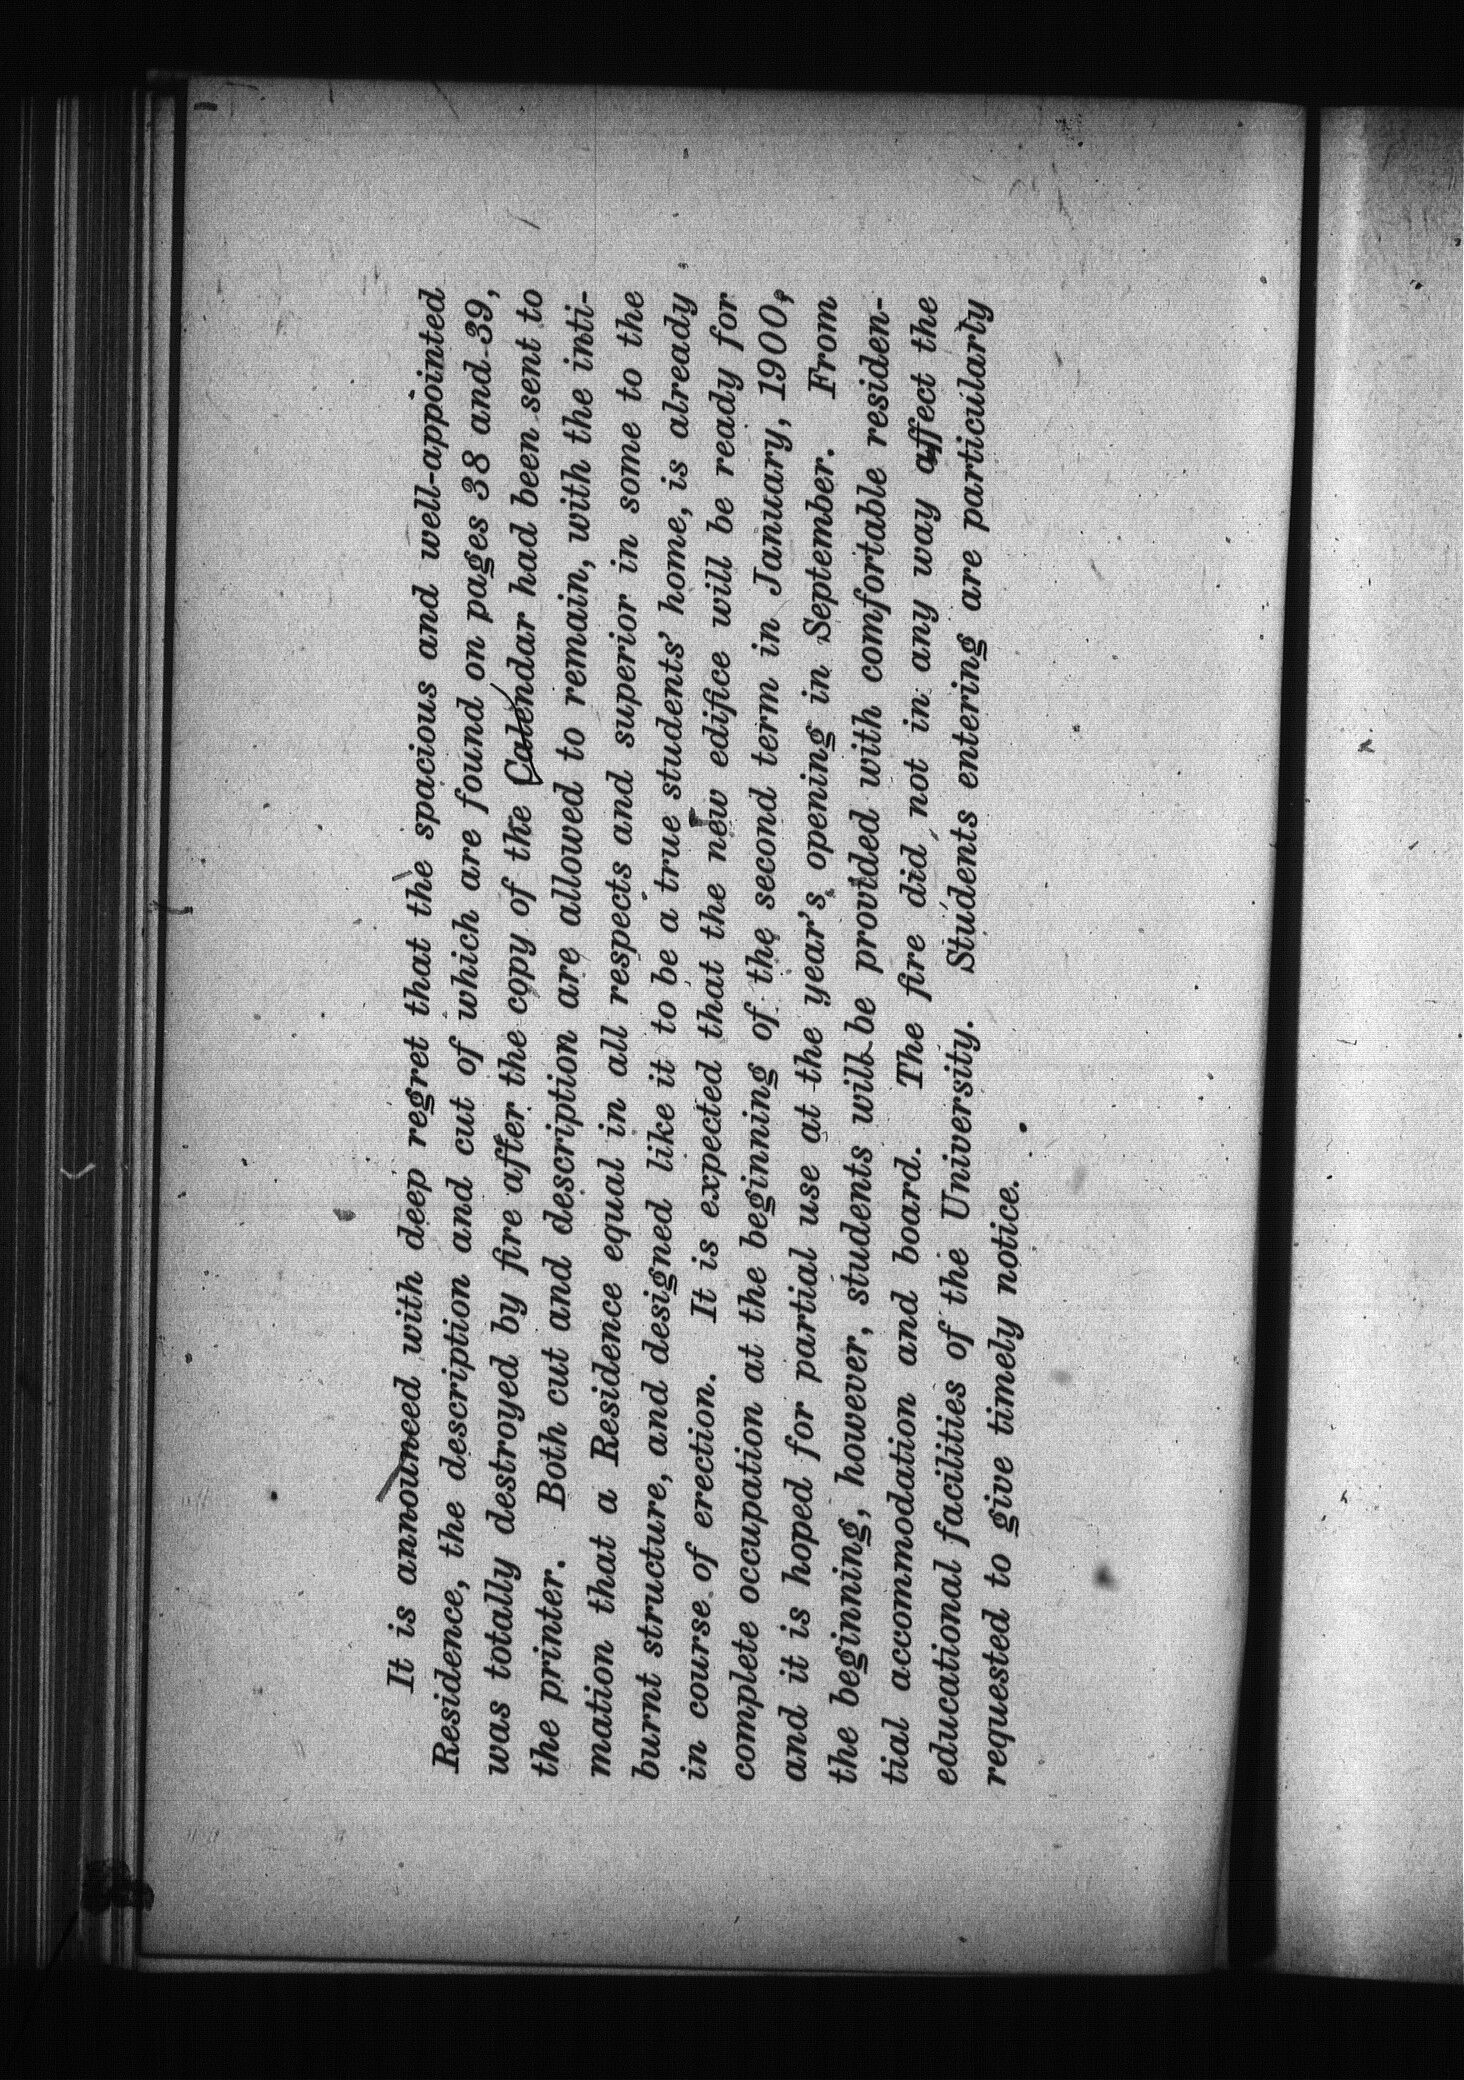 It is announced with deep regret that the spacious and well-appointed
Residence, the description and cut of which are found on pages 38 and 39,
was totally destroyed by fire after the copy of the Calendar had been sent to
the printer. Both cut and description are allowed to remain, with the inti-
mation that a Residence equal in all respects and superior in some to the
burnt structure, and designed like it to be a true students' home, is already
in course of erection. It is expected that the new edifice will be ready for
complete occupation at the beginning of the second term in January, 1900,
and it is hoped for partial use at the year's opening in September. From
the beginning, however, students will be provided with comfortable residen-
tial accommodation and board. The fire did not in any way affect the
educational facilities of the University. Students entering are particularly
requested to give timely notice.